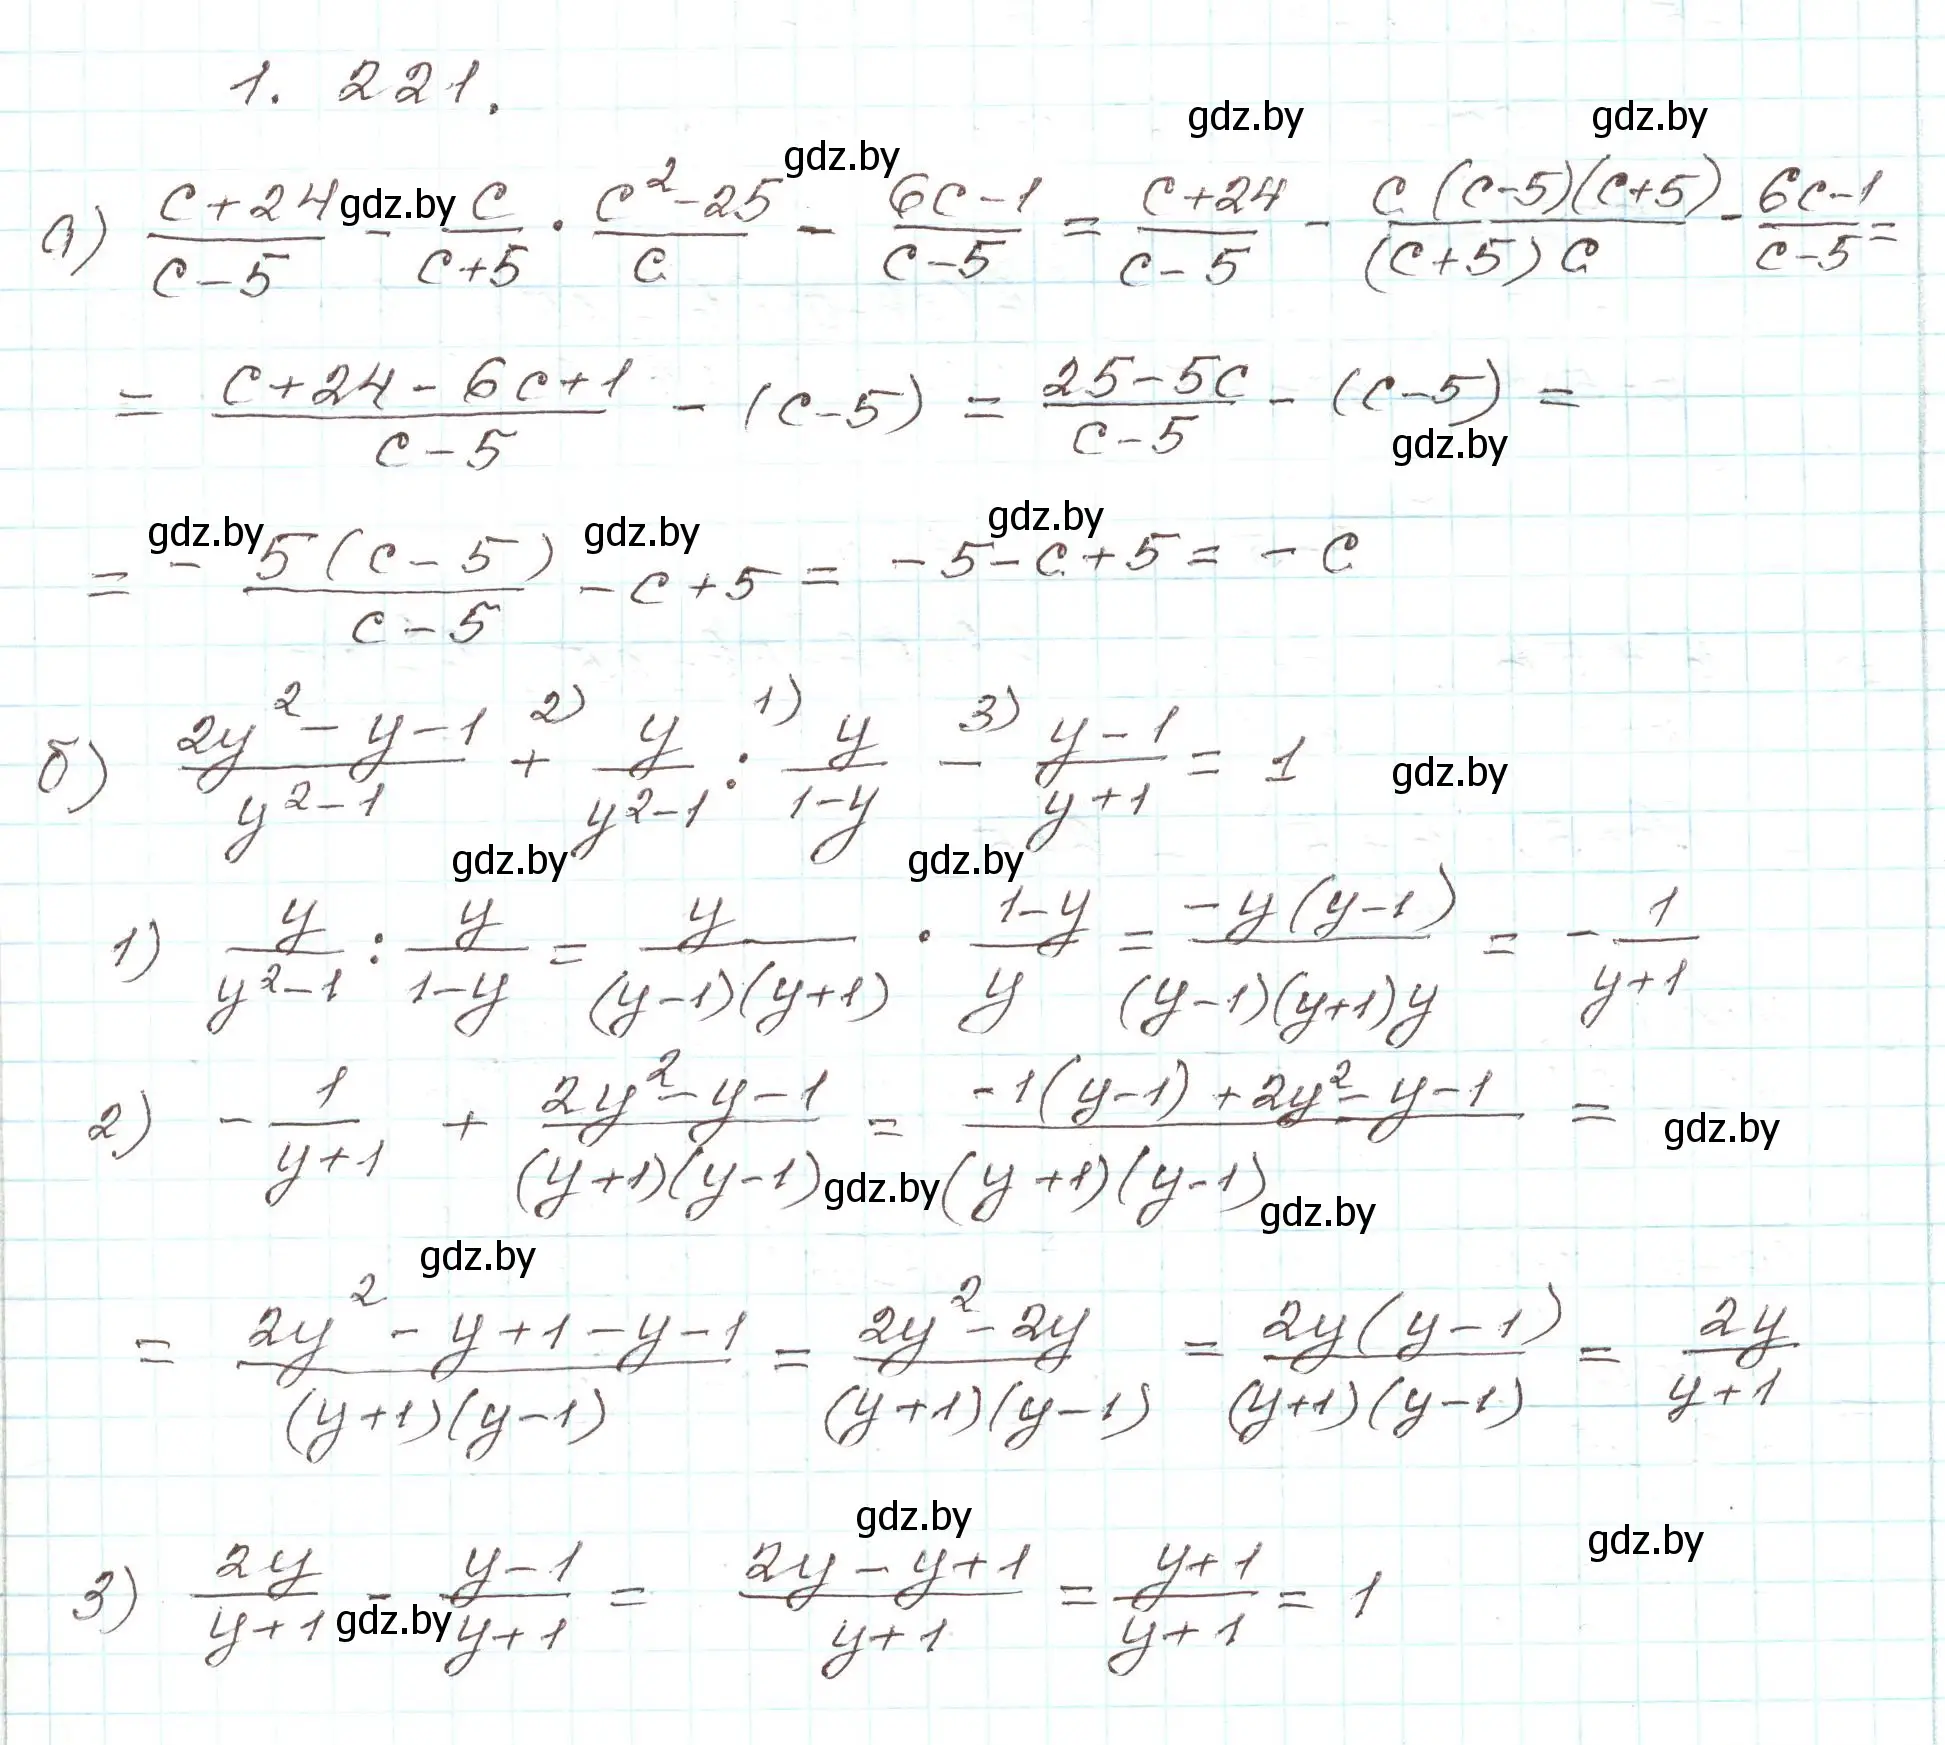 1. 221.
gdz.by gdz.by gdz.by
а) (c+24)/(c-5) - c/(c+5) · (c²-25)/c - (6c-1)/(c-5) = (c+24)/(c-5) - (c(c-5)(c+5))/((c+5)c) - (6c-1)/(c-5) =
gdz.by
= (c+24-6c+1)/(c-5) - (c-5) = (25-5c)/(c-5) - (c-5) =
gdz.by
gdz.by gdz.by gdz.by
= - (5(c-5))/(c-5) - c+5 = -5-c+5 = -c
б) (2y²-y-1)/(y²-1) +²⁾ y/(y²-1) :¹⁾ y/(1-y) -³⁾ (y-1)/(y+1) = 1 gdz.by
gdz.by gdz.by
1) y/(y²-1) : y/(1-y) = y/((y-1)(y+1)) · (1-y)/y = (-y(y-1))/((y-1)(y+1)y) = - 1/(y+1)
2) - 1/(y+1) + (2y²-y-1)/((y+1)(y-1)) = (-1(y-1)+2y²-y-1)/((y+1)(y-1)) = gdz.by
gdz.by gdz.by
gdz.by
= (2y²-y+1-y-1)/((y+1)(y-1)) = (2y²-2y)/((y+1)(y-1)) = (2y(y-1))/((y+1)(y-1)) = 2y/(y+1)
gdz.by gdz.by
3) 2y/(y+1) - (y-1)/(y+1) = (2y-y+1)/(y+1) = (y+1)/(y+1) = 1
gdz.by